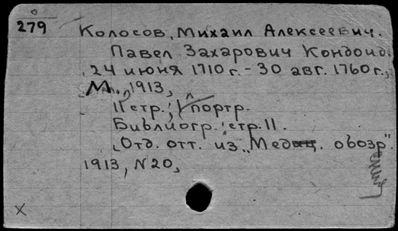 279
Колосов, Михаил Алексеевич.
Павел Захарович Кондоиди
24 июня 1710 г. - 30 авг. 1760 г.,
М., 1913,
11 стр.; 1 портр.
Библиогр.: стр. 11.
"Отд. отт. из "Медиц. обозр."
1913, N 20,